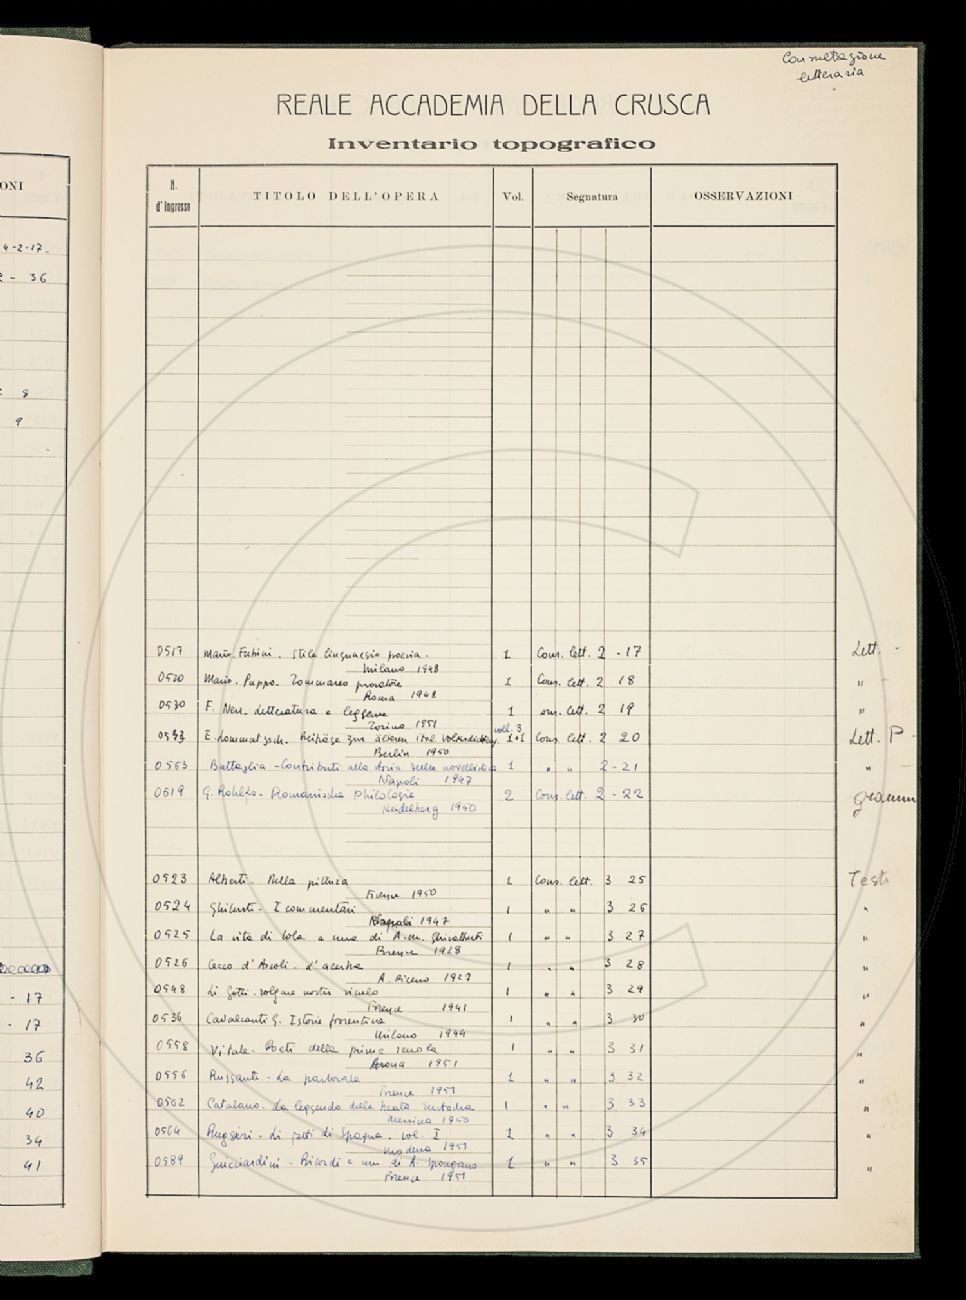 Consultazione
letteraria
REALE ACCADEMIA DELLA CRUSCA
Inventario topografico
N. d'ingresso TITOLO DELL'OPERA Vol. Segnatura OSSERVAZIONI
ONI
4-2-17.
- 36
8
9
- 17
- 17
36
42
40
34
41
0517 Mario Fubini. Stile linguaggio poesia. 1 Cons. lett. 2 - 17 Lett. -
Milano 1948
0520 Mario. Puppo. Tommaseo prosatore 1 Cons. lett. 2 18 "
Roma 1948
0530 F. Neri. Letteratura e leggende 1 ons. lett. 2 19 "
Torino 1951
0533 E. Lommatzsch. Beiträge zur älteren ital. Volksdichtung. voll. 3. 1+1 Cons. lett. 2 20 Lett. P -
Berlin 1950
0563 Battaglia - Contributi alla storia della novellistica 1 " " 2-21 "
Napoli 1947
0619 G. Rohlfs - Romanische Philologie 2 Cons. lett. 2 - 22 gramm
Heidelberg 1950
0523 Alberti. Della pittura 1 Cons. lett. 3 25 Testi
Firenze 1950
0524 Ghiberti - I commentari 1 " " 3 26 "
Napoli 1947
0525 La vita di Cola a cura di A. M. Ghisalberti 1 " " 3 27 "
Firenze 1928
0526 Cecco d'Ascoli. L'acerba 1 " " 3 28 "
A. Piceno 1927
0548 Li Gotti. volgare nostro siculo 1 " " 3 29 "
Firenze 1941
0536 Cavalcanti G. Istorie fiorentine 1 " " 3 30 "
Milano 1944
0558 Vitale - Poeti della prima scuola 1 " " 3 31 "
1951
0556 Ruzzante - La pastorale 1 " " 3 32 "
Firenze 1951
0562 Catalano. La leggenda della beata Eustochia 1 " " 3 33 "
Messina 1950
0564 Ruggieri - Li fatti di Spagna. vol. I 1 " " 3 34 "
Modena 1951
0589 Guicciardini - Ricordi a cura di R. Spongano 1 " " 3 35 "
Firenze 1951